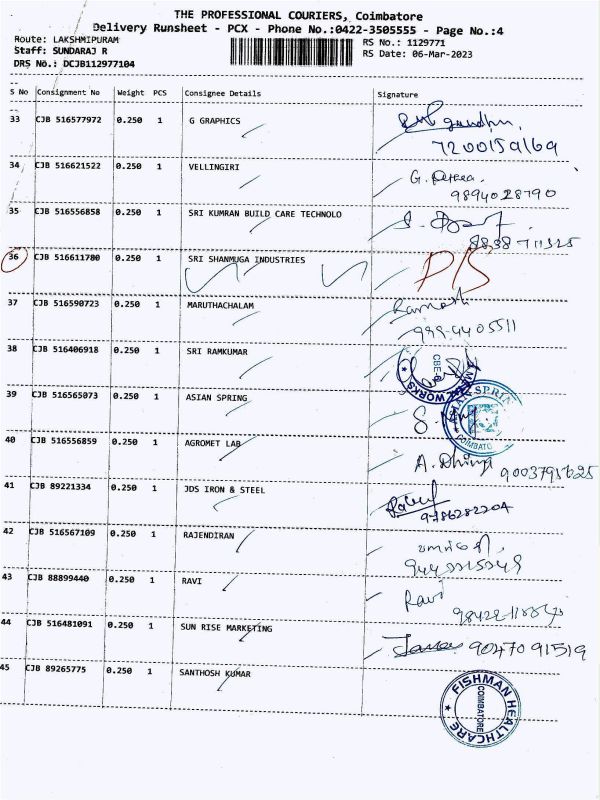 THE PROFESSIONAL COURIERS, Coimbatore
Delivery Runsheet - PCX - Phone No.:0422-3505555 - Page No.:4
Route: LAKSHMIPURAM RS No.: 1129771
Staff: SUNDARAJ R RS Date: 06-Mar-2023
DRS No.: DCJB112977104
S No Consignment No Weight PCS Consignee Details Signature
33 CJB 516577972 0.250 1 G GRAPHICS gandhi
7200159169
34 CJB 516621522 0.250 1 VELLINGIRI G.
9894028790
35 CJB 516556858 0.250 1 SRI KUMRAN BUILD CARE TECHNOLO S.
36 CJB 516611780 0.250 1 SRI SHANMUGA INDUSTRIES D/S
37 CJB 516590723 0.250 1 MARUTHACHALAM Ramesh
38 CJB 516406918 0.250 1 SRI RAMKUMAR WORKS
39 CJB 516565073 0.250 1 ASIAN SPRING S.
40 CJB 516556859 0.250 1 AGROMET LAB A. Dhivya 9003795625
41 CJB 89221334 0.250 1 JDS IRON & STEEL
9786282204
42 CJB 516567109 0.250 1 RAJENDIRAN
43 CJB 88899440 0.250 1 RAVI Ravi
44 CJB 516481091 0.250 1 SUN RISE MARKETING 9047091519
45 CJB 89265775 0.250 1 SANTHOSH KUMAR FISHMAN HEALTHCARE
COIMBATORE